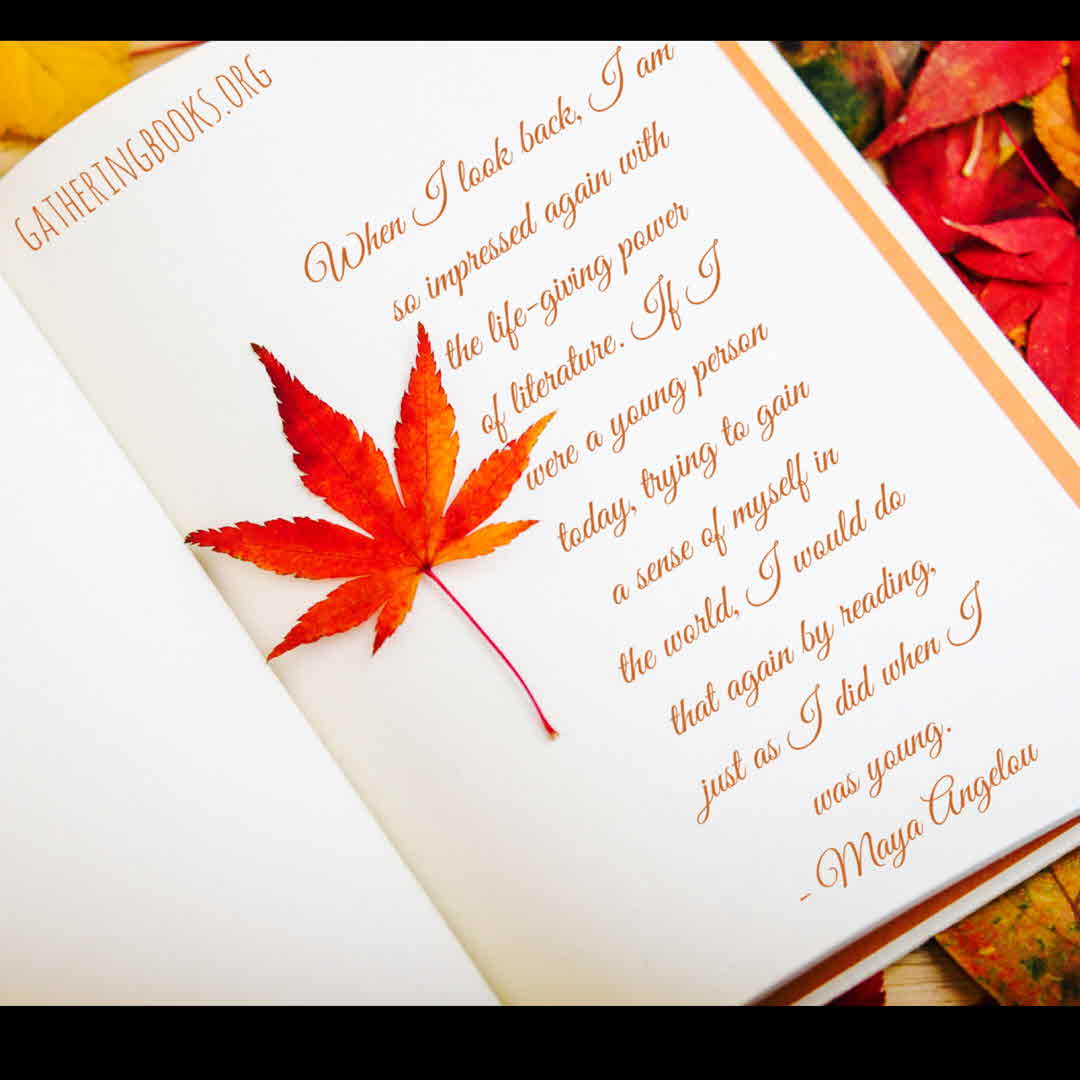 GATHERINGBOOKS.ORG
When I look back, I am
so impressed again with
the life-giving power
of literature. If I
were a young person
today, trying to gain
a sense of myself in
the world, I would do
that again by reading,
just as I did when I
was young.
- Maya Angelou